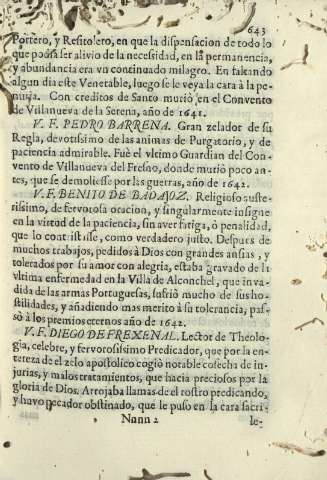 643
Portero, y Refitolero, en que la dispensacion de todo lo
que podia ser alivio de la necesidad, en la permanencia,
y abundancia era vn continuado milagro. En faltando
algun dia este Venerable, luego se le veya la cara à la pe-
nuria. Con creditos de Santo murió en el Convento
de Villanueva de la Serena, año de 1641.
V. F. PEDRO BARRENA. Gran zelador de su
Regla, devotissimo de las animas de Purgatorio, y de
paciencia admirable. Fue el vltimo Guardian del Con-
vento de Villanueva del Fresno, donde murió poco an-
tes, que se demoliesse por las guerras, año de 1642.
V. F. BENITO DE BADAJOZ. Religioso auste-
rissimo, de fervorosa oracion, y singularmente insigne
en la virtud de la paciencia, sin aver fatiga, ò penalidad,
que lo contristasse, como verdadero justo. Despues de
muchos trabajos, pedidos à Dios con grandes ansias, y
tolerados por su amor con alegria, estaba gravado de la
vltima enfermedad en la Villa de Alconchel, que inva-
dida de las armas Portuguesas, sufrió mucho de sus hos-
tilidades, y añadiendo mas merito à su tolerancia, pas-
sò à los premios eternos año de 1642.
V. F. DIEGO DE FREXENAL. Lector de Theolo-
gia, celebre, y fervorosissimo Predicador, que por la en-
tereza de el zelo apostolico cogiò notable cosecha de in-
jurias, y malos tratamientos, que hacia preciosos por la
gloria de Dios. Arrojaba llamas de el rostro predicando,
y huvo pecador obstinado, que le puso en la cara sacri-
Nnnn 2 le-